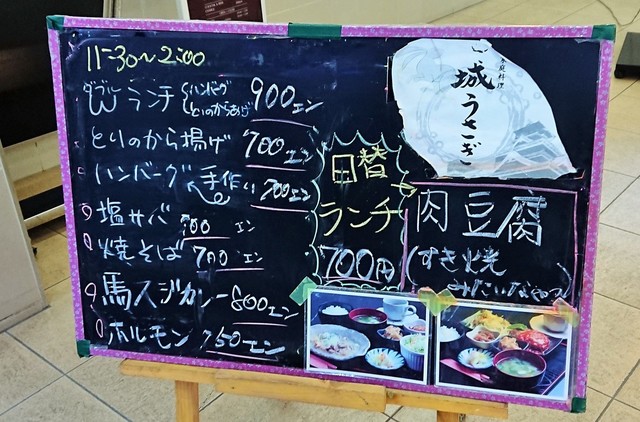 11:30~2:00
ダブルW ランチ (ハンバーグ とりのからあげ 900エン
とりのから揚げ 700エン
ハンバーグ 手作り 700エン
塩サバ 700 エン
焼そば 700 エン
馬スジカレー 800エン
ホルモン 750エン
日替
ランチ
700円
肉豆腐
(すき焼
みたいなやつ)
家庭料理
城うさぎ